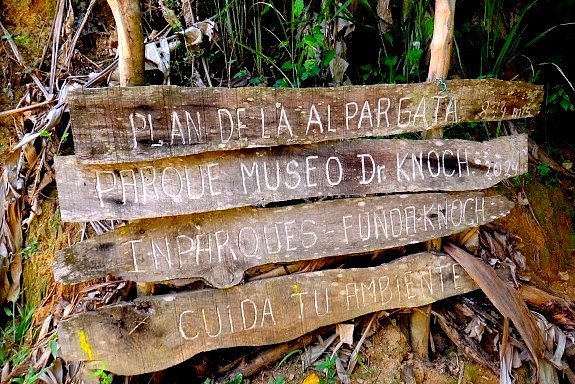 PLAN DE LA ALPARGATA
PARQUE MUSEO Dr. KNOCH
INPARQUES - FUNDA-KNOCH
CUIDA TU AMBIENTE